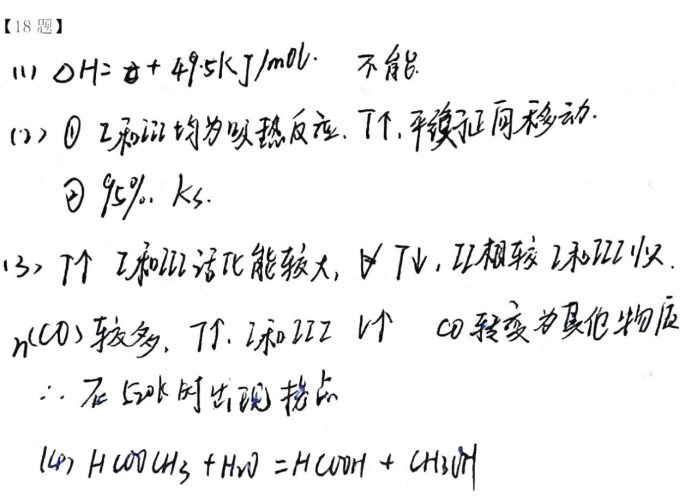 【18 题】
(1) ΔH= + 49.5KJ/mol. 不能.
(2) ① I和III均为吸热反应. T↑, 平衡正向移动.
② 95%. Ks.
(3) T↑ I和III活化能较大, T↓, II相较I和III
n(CO)较多, T↑. I和III V↑ CO转变为其他物质
∴ 在520k时出现拐点
(4) HCOOCH3 + H2O = HCOOH + CH3OH